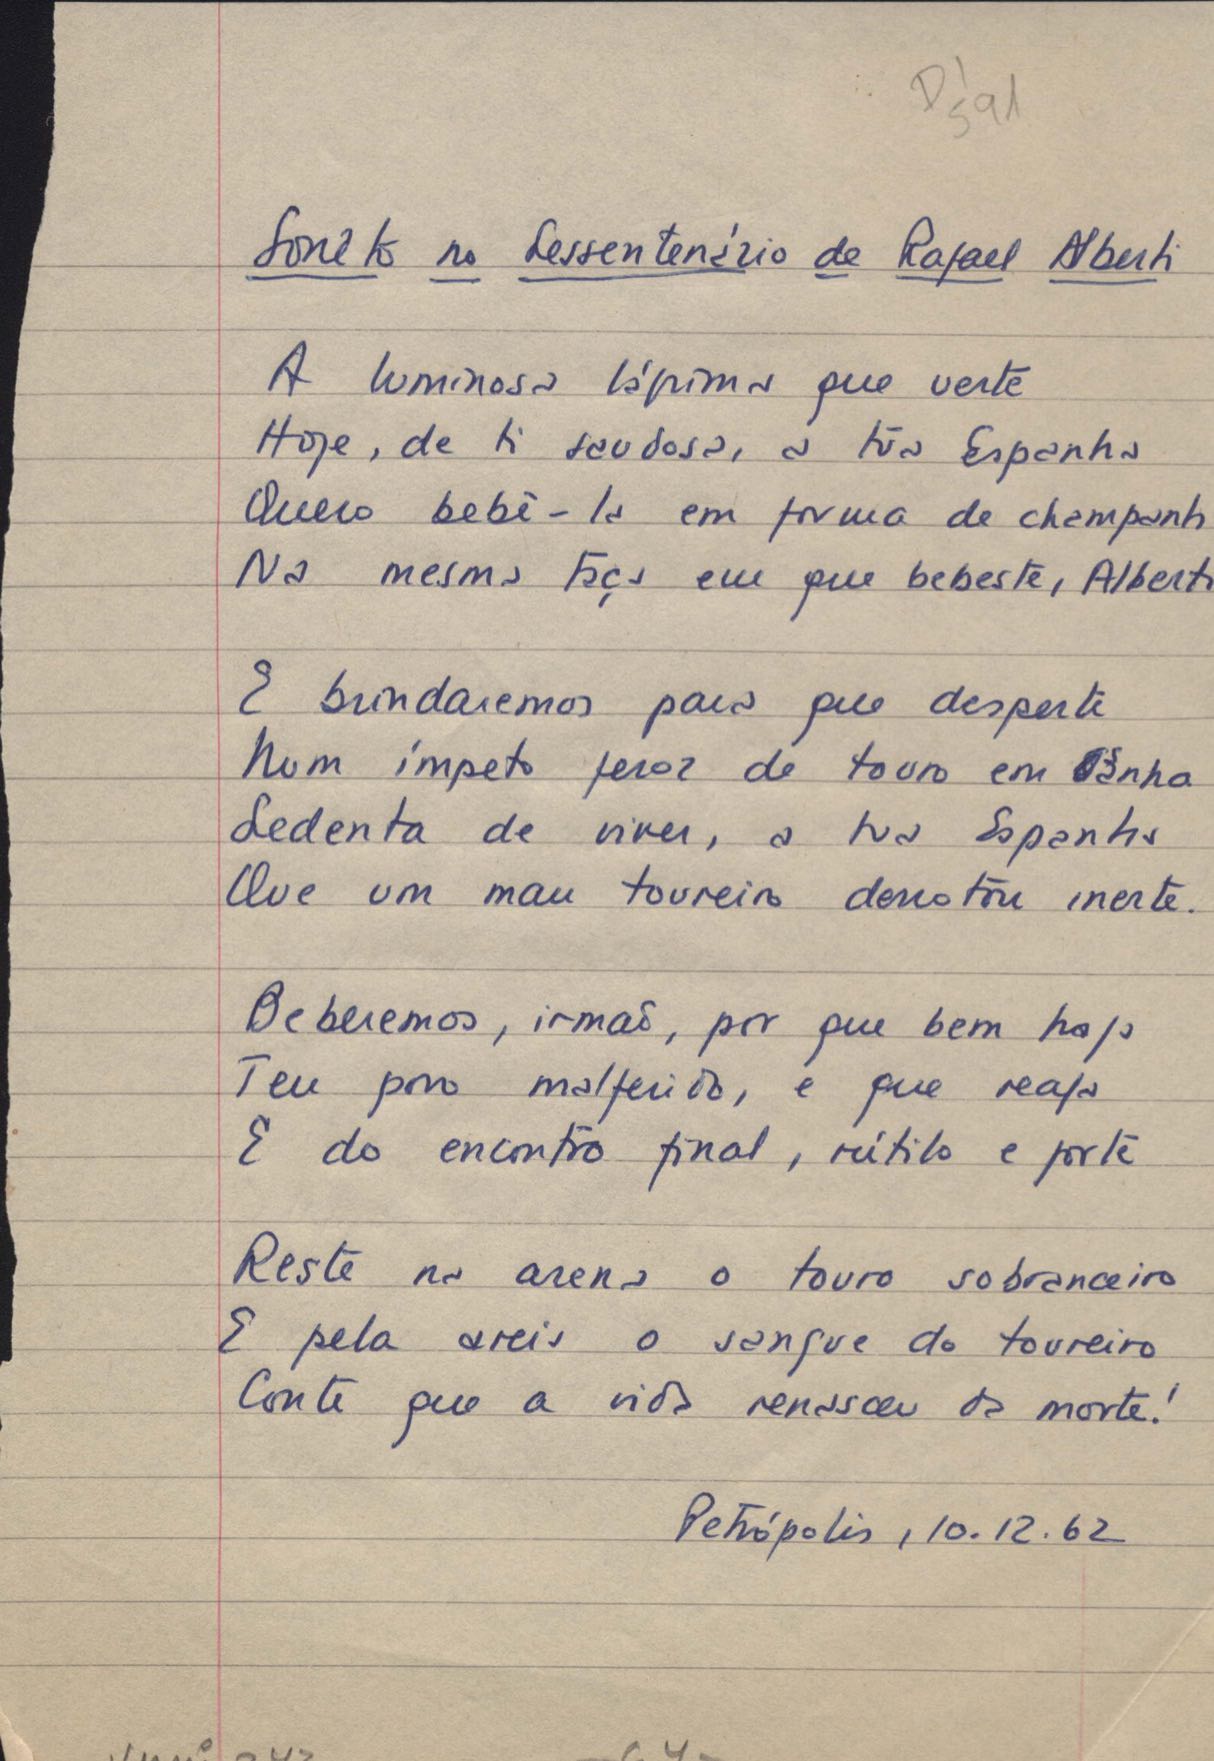 D'591
Sonêto no Sessentenário de Rafael Alberti
A luminosa lágrima que verte
Hoje, de ti saudosa, a tua Espanha
Quero bebê-la em forma de champanh
Na mesma taça em que bebeste, Alberti
E brindaremos para que desperte
Num ímpeto feroz de touro em sanha
Sedenta de viver, a tua Espanha
Que um mau toureiro derrotou inerte.
Beberemos, irmão, por que bem haja
Teu povo malferido, e que reaja
E do encontro final, rútilo e forte
Reste na arena o touro sobranceiro
E pela areia o sangue do toureiro
Conte que a vida renasceu da morte!
Petrópolis, 10.12.62